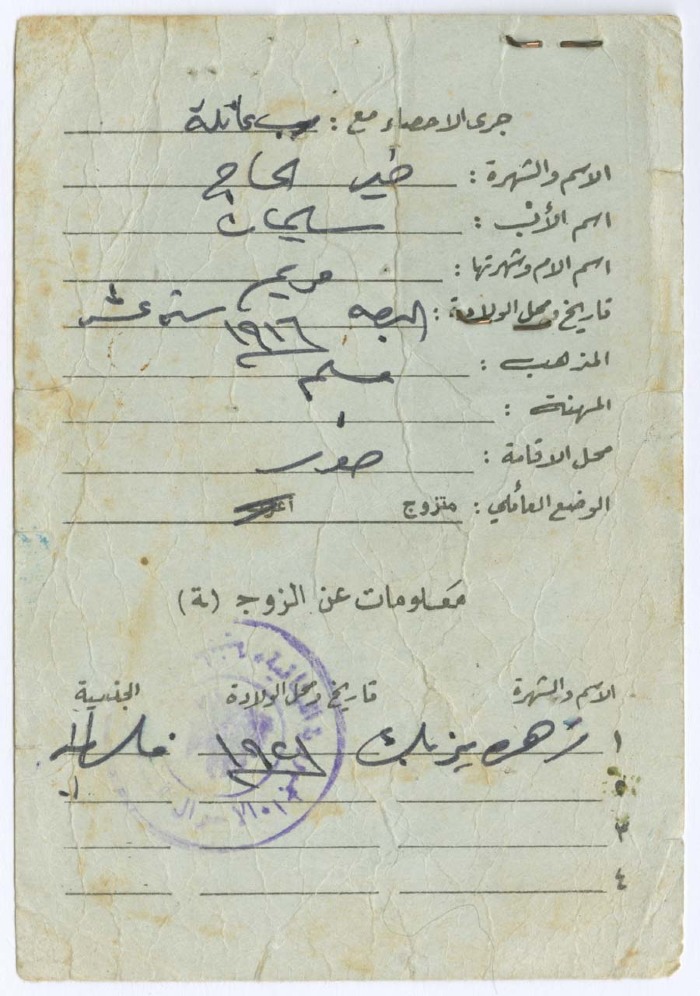 جرى الاحصاء مع : رب عائلة
الاسم والشهرة : خير الحاج
اسم الأب : سليمان
اسم الام وشهرتها : مريم
تاريخ ومحل الولادة : البصه ١٩١٦ ستة عشر
المذهب : مسلم
المهنة :
محل الاقامة : صور
الوضع العائلي : متزوج اعزب
معلومات عن الزوج (ة)
الاسم والشهرة تاريخ ومحل الولادة الجنسية
١ زهره يزبك ١٩٢١
٢
٣
٤